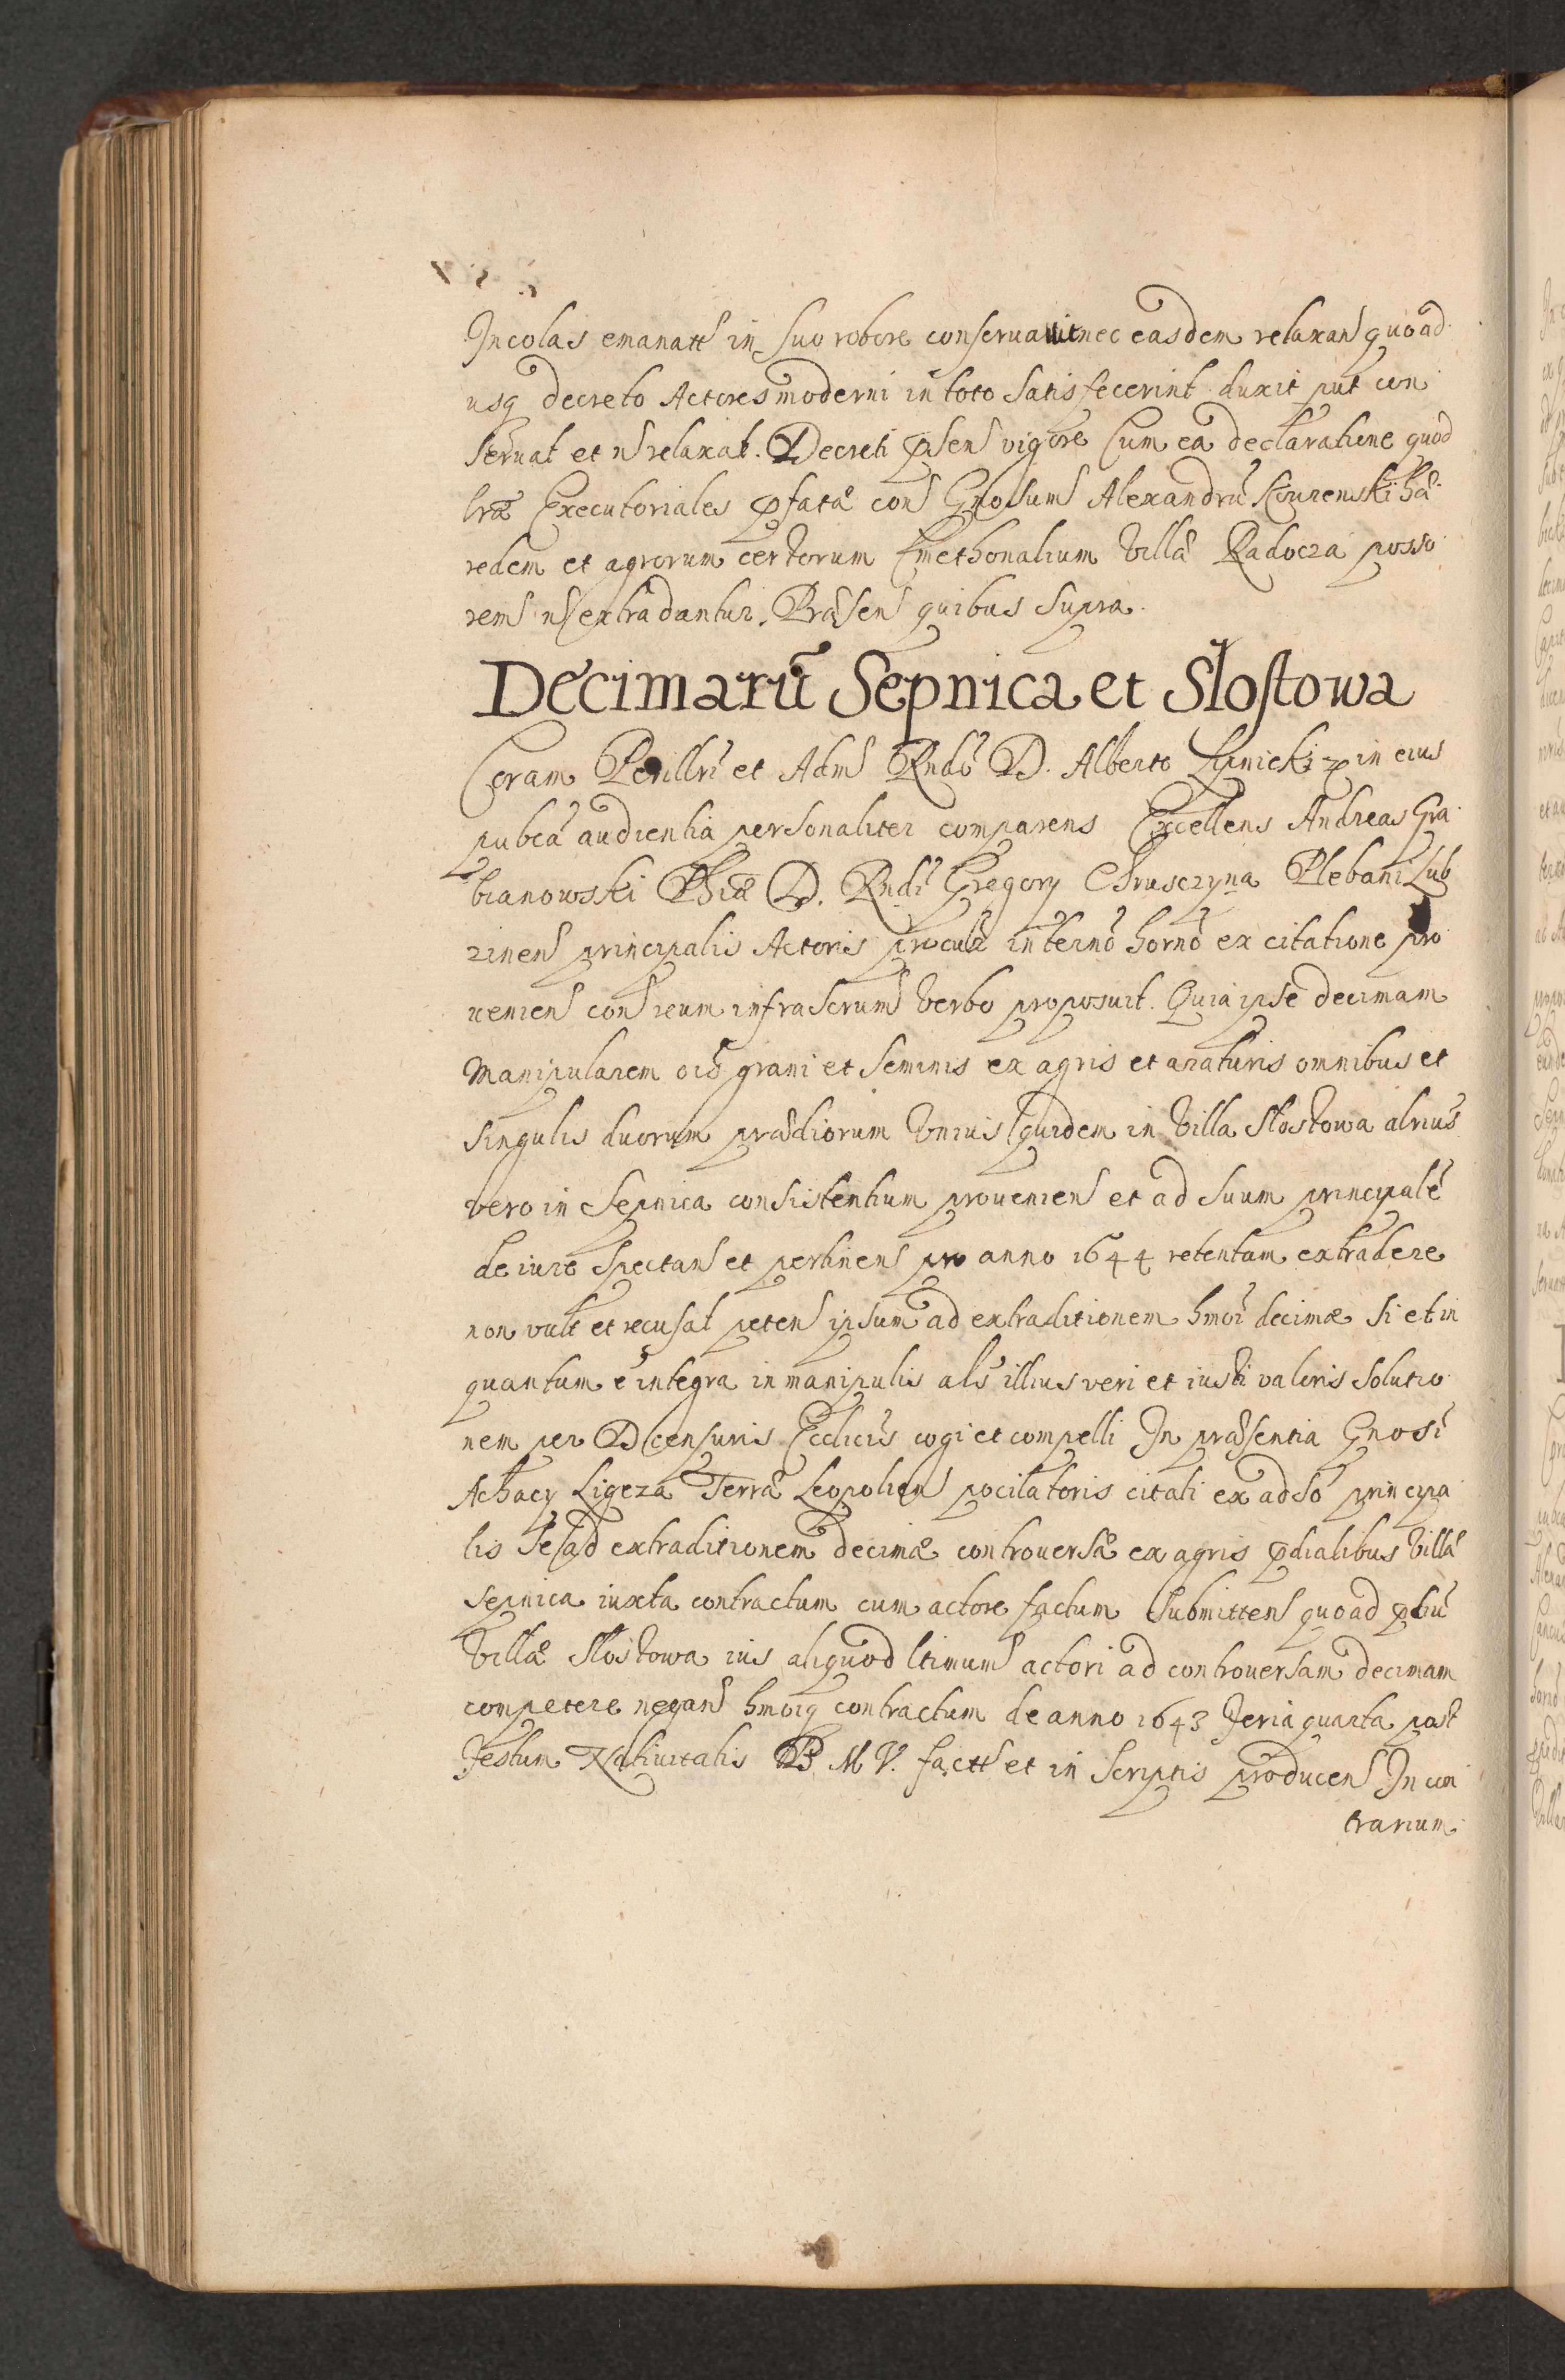 Incolas emanatt in suo robore conseruauit nec easdem relaxan quoad
usq decreto Actores moderni in toto satisfecerint duxit put con
seruat et n relaxat. Decreti psen vigore Cum ea declaratione quod
lræ Executoriales pfatæ con Gnosum Alexandrū hæ
redem et agrorum certorum Cmethonalium Villæ Radocza posso
rem n extradantur. Præsen quibus supra.
Decimarū Sepnica et Słostowa
Coram Perillri et Adm Rndo D. Alberto Lipnicki in eius
pubca audientia personaliter comparens Excellens Andreas Gra
bianowski Phiæ D. Rndi Gregory Chrusczyna Plebani Lub
zinen principalis Actoris procutor in termo horno ex citatione pro
uenien con reum infrascrum verbo proposuit. Quia ipse decimam
Manipularem ois grani et seminis ex agris et araturis omnibus et
singulis duorum prædiorum Vnius quidem in Villa Słostowa alrius
vero in Sepnica consistentium prouenien et ad suum principalē
de iure spectan et pertinen pro anno 1644 retentam extradere
non vult et recusat peten ipsum ad extraditionem hmoi decimæ si et in
quantum ē integra in manipulis als illius veri et iusti valoris solutio
nem per D censuris Ecclicis cogi et compelli In præsentia Gnosi
Achacy Ligeza Terræ Leopolien pocilatoris citati ex adso principa
lis se ad extraditionem decimæ controuersæ ex agris pdialibus Villæ
sepnica iuxta contractum cum actore factum submitten quoad
Villæ Słostowa ius aliquod ltimum actori ad controuersam decimam
competere negan hmoiq contractum de anno 1643 feria quarta post
festum Natiuitatis B M V. factt et in scriptis producen In con
trarium